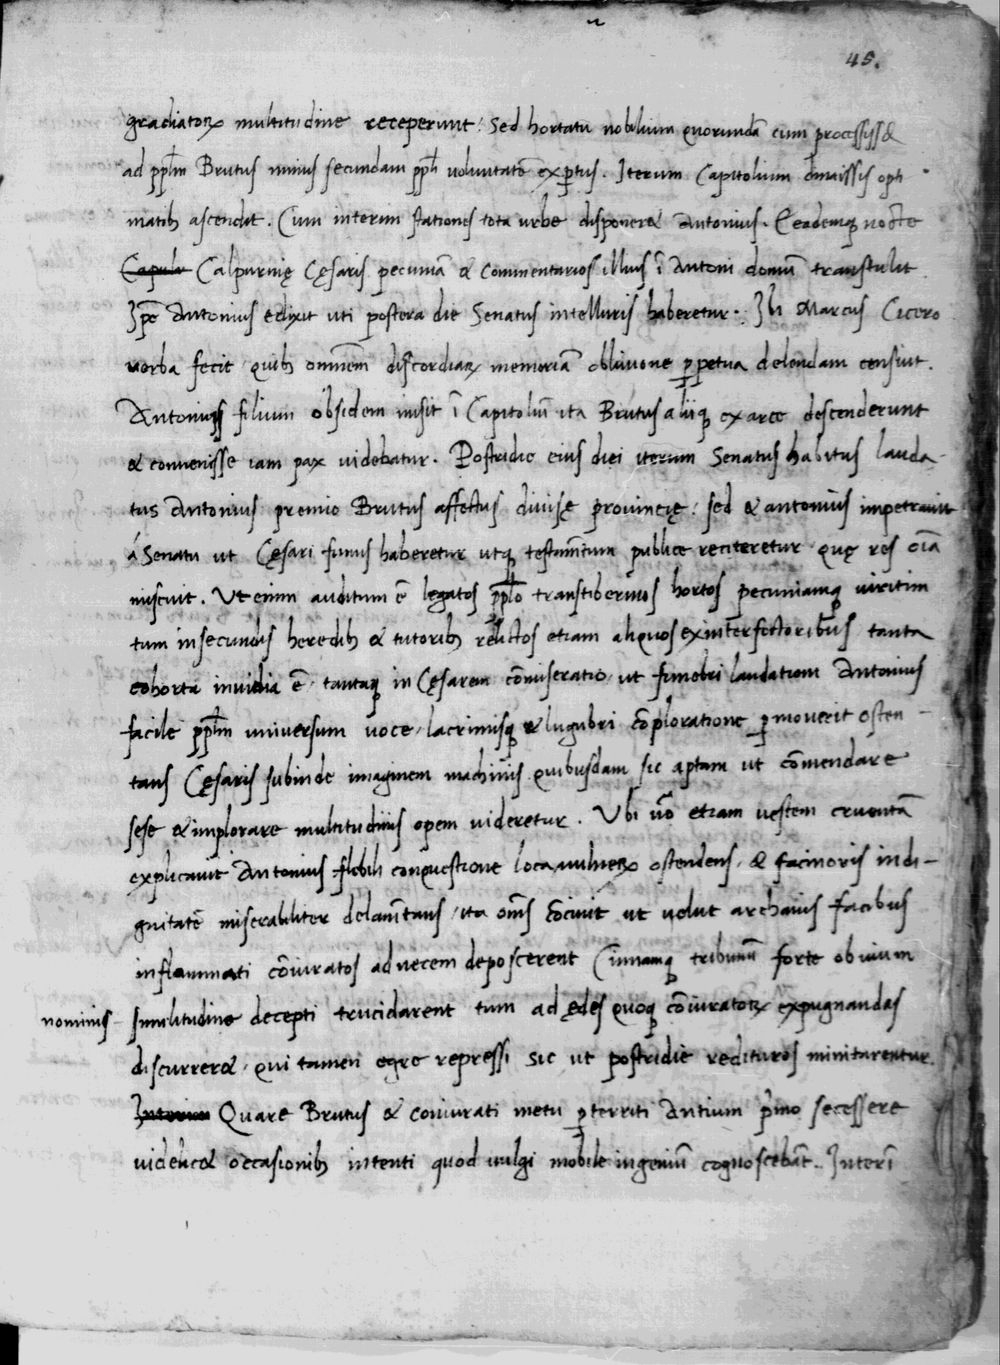 45.
gradiatoꝝ multitudine receperunt: Sed hortatu nobilium quorundā cum processiss&
ad ppl̄m Brutus minus secundam ppl̄i voluntatē exꝑtus. Iterum Capitolium dimissis opti
matibꝫ ascendit. Cum interim stationes tota urbe disponer& Antonius. Eeademqꝫ nocte
Calpurnię Cęsaris pecuniā & Commentarios illius ī Antoni domū transtulit
Ipē Antonius edixit uti postera die Senatus intelluris haberetur. Ibi Marcus Cicero
verba fecit quibꝫ omnem discordiaꝝ memoriā oblivione ꝑpetua delendam censiut.
Antonius filium obsidem misit ī Capitoliū ita Brutus aliiqꝫ ex arce descenderunt
& convenisse iam pax videbatur. Postridie eius diei iterum Senatus habitus lauda-
tus Antonius premio Brutus affectus divisę provincię: sed & antonius impetravit
á Senatu ut Cęsari funus haberetur utqꝫ testam̄tum publice reciteretur quę res oīa
miscuit. Ut enim auditum ē legatos ppl̄o transtiberinos hortos pecuniamqꝫ viritim
tum in secundis heredibꝫ & tutoribꝫ relictos etiam aliquos ex interfectoribus tanta
cohorta invidia ē tantaqꝫ in Cęsarem cōmiseratio ut funebri laudationi Antonius
facile ppl̄m universum voce, lacrimisqꝫ & lugubri cōploratione ꝑmoverit osten-
tans Cęsaris subinde imaginem machinis quibusdam sic aptam ut cōmendare
sese & implorare multitudinis opem videretur. Ubi v̄o etiam vestem cruentā
explicavit Antonius flebili conquestione loca vulneꝝ ostendens, & facinoris indi-
gnitatē miserabiliter delam̄tans, ita om̄s cōcivit ut velut archanis facibus
inflammati cōiuratos ad necem deposcerent Cinnamqꝫ tribunū forte obvium
nominis - similitudine decepti trucidarent tum ad ędes quoqꝫ cōiuratoꝝ expugnandas
discurrer&, qui tamen egre repressi sic ut postridie redituros minitarentur.
Quare Brutus & coniurati metu ꝑterriti Antium p̄mo secessere
occasionibꝫ intenti quod vulgi mobile ingeniū cognoscebāt. Interī